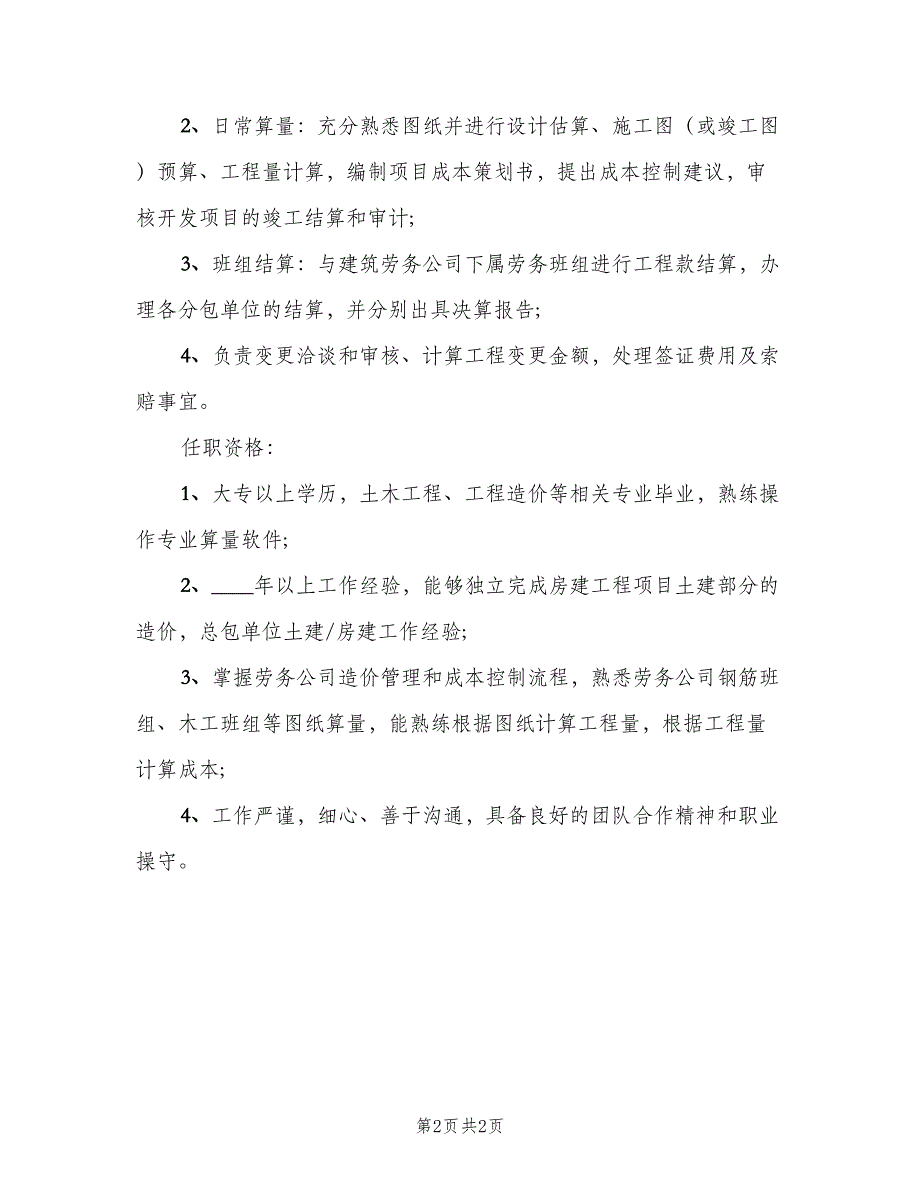 2、日常算量：充分熟悉图纸并进行设计估算、施工图（或竣工图
）预算、工程量计算，编制项目成本策划书，提出成本控制建议，审
核开发项目的竣工结算和审计;
3、班组结算：与建筑劳务公司下属劳务班组进行工程款结算，办
理各分包单位的结算，并分别出具决算报告;
4、负责变更洽谈和审核、计算工程变更金额，处理签证费用及索
赔事宜。
任职资格：
1、大专以上学历，土木工程、工程造价等相关专业毕业，熟练操
作专业算量软件;
2、____年以上工作经验，能够独立完成房建工程项目土建部分的
造价，总包单位土建/房建工作经验;
3、掌握劳务公司造价管理和成本控制流程，熟悉劳务公司钢筋班
组、木工班组等图纸算量，能熟练根据图纸计算工程量，根据工程量
计算成本;
4、工作严谨，细心、善于沟通，具备良好的团队合作精神和职业
操守。
第2页 共2页